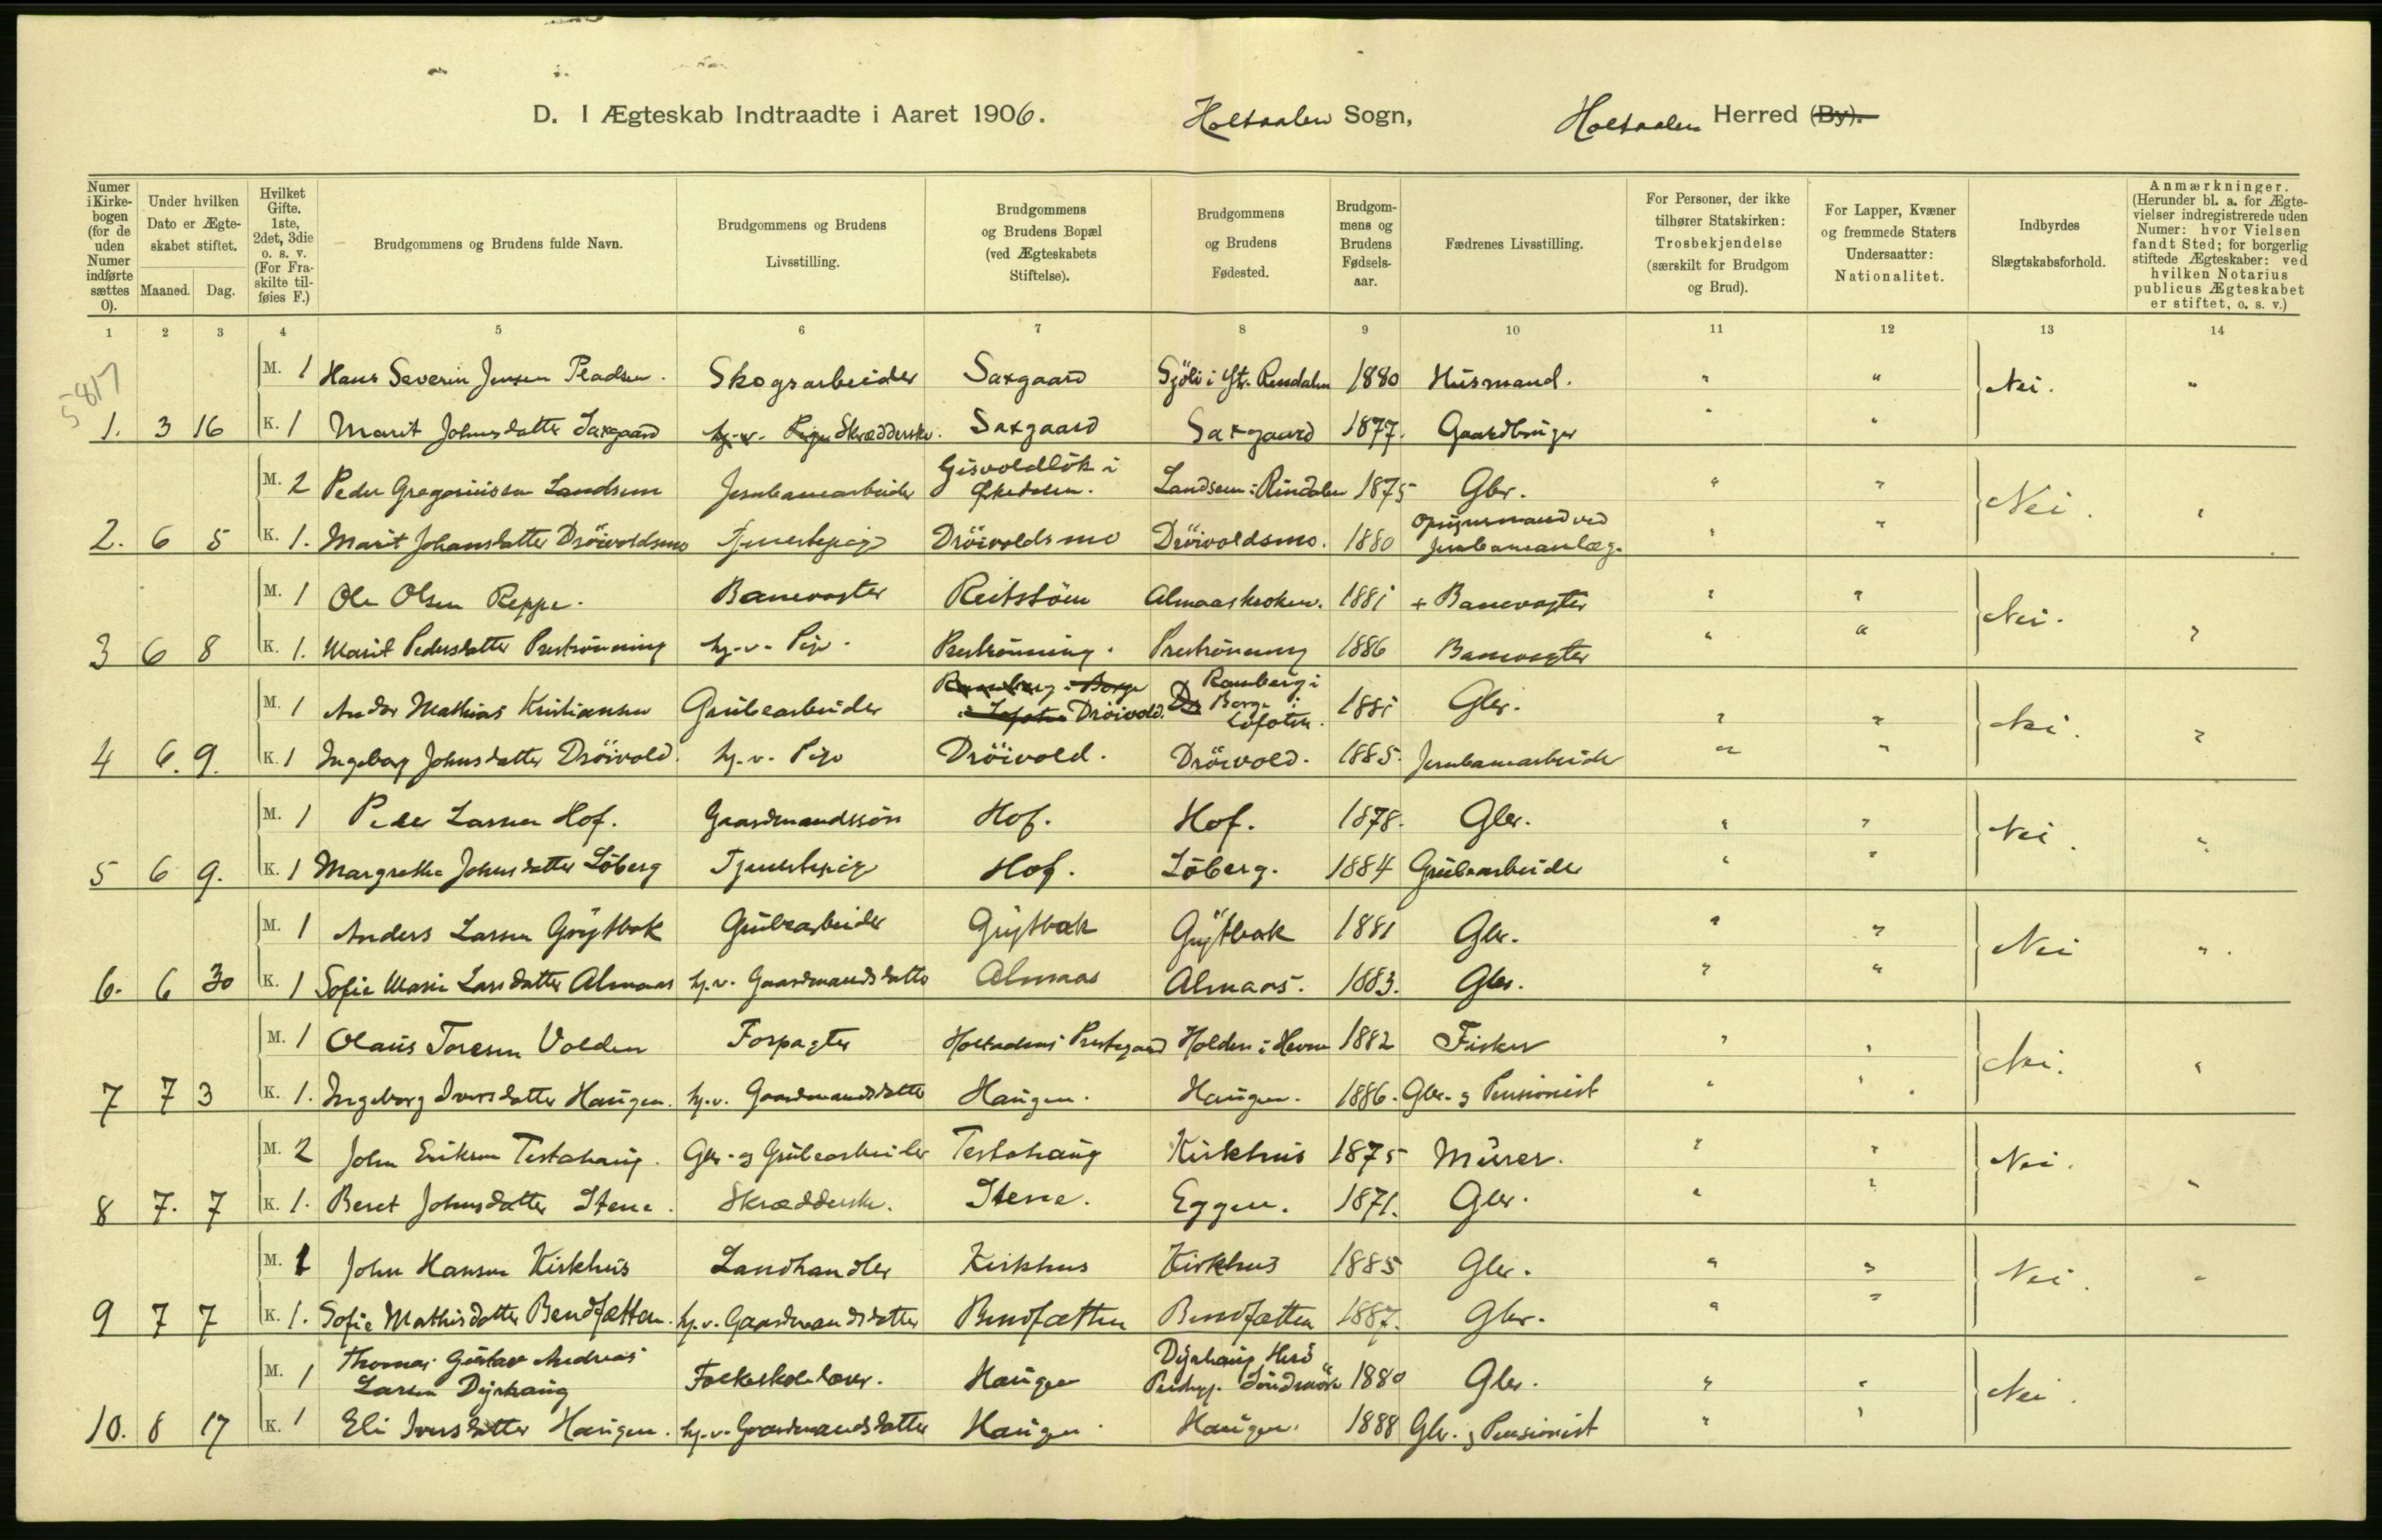 D. I Ægteskab Indtraadte i Aaret 1906. Holtaalen Sogn, Holtaalen Herred (By).
Numer i Kirkebogen (for de uden Numer indførte sættes 0). Under hvilken Dato er Ægteskabet stiftet. Maaned. Dag. Hvilket Gifte. 1ste, 2det, 3die o. s. v. (For Fraskilte tilføies F.) Brudgommens og Brudens fulde Navn. Brudgommens og Brudens Livsstilling. Brudgommens og Brudens Bopæl (ved Ægteskabets Stiftelse). Brudgommens og Brudens Fødested. Brudgommens og Brudens Fødselsaar. Fædrenes Livsstilling. For Personer, der ikke tilhører Statskirken: Trosbekjendelse (særskilt for Brudgom og Brud). For Lapper, Kvæner og fremmede Staters Undersaatter: Nationalitet. Indbyrdes Slægtskabsforhold. Anmærkninger. (Herunder bl. a. for Ægtevielser indregistrerede uden Numer: hvor Vielsen fandt Sted; for borgerlig stiftede Ægteskaber: ved hvilken Notarius publicus Ægteskabet er stiftet, o. s. v.)
1 2 3 4 5 6 7 8 9 10 11 12 13 14
5817
M. 1 Hans Severin Jensen Pladsen. Skogsarbeider Saxgaard Sjöli i Ytr. Rendalen 1880 Husmand. " " Nei. "
1. 3 16 K. 1 Marit Johnsdatter Saxgaard hj.-v. Pige Skrædderske. Saxgaard Saxgaard 1877. Gaardbruger " "
M. 2 Peder Gregoriussen Landsem Jernbanearbeider Gisvoldlök i Landsem i Rindalen 1875 Gbr. " " Nei. "
2. 6 5 K. 1. Marit Johansdatter Dröivoldsmo Tjenestepige Dröivoldsmo Dröivoldsmo. 1880 Opsynsmand ved Jernbaneanlæg. " "
M. 1 Ole Olsen Reppe. Banevogter Reitstöen Almaaskroken. 1881 + Banevogter " " Nei. "
3 6 8 K. 1. Marit Pedersdatter Preströnning hj.-v. Pige. Preströnning. Preströnning 1886 Banevogter " "
M. 1 Andor Mathias Kristiansen Grubearbeider Ramberg i Borge i Lofoten Dröivold. Ramberg i Borge i Lofoten. 1881 Gbr. " " Nei. "
4 6. 9. K. 1 Ingeborg Johnsdatter Dröivold. hj.-v. Pige Dröivold. Dröivold. 1885. Jernbanearbeider " "
M. 1 Peder Larsen Hof. Gaardmandssön Hof. Hof. 1878. Gbr. " " Nei. "
5 6 9. K. 1 Margrethe Johnsdatter Löberg Tjenestepige Hof. Löberg. 1884 Grubearbeider " "
M. 1 Anders Larsen Grytbak Grubearbeider Grytbak Grytbak 1881 Gbr. " " Nei "
6. 6 30 K. 1 Sofie Marie Larsdatter Almaas hj.-v. Gaardmandsdatter Almaas Almaas. 1883. Gbr. " "
M. 1 Olaus Toresen Volden Forpagter Holtaalens Prestegaard Holden i Hevne 1882 Fisker " " Nei. "
7 7 3 K. 1. Ingeborg Iversdatter Haugen. hj.-v. Gaardmandsdatter Haugen. Haugen. 1886. Gbr. og Pensionist " "
M. 2 John Eriksen Testahaug. Gbr. og Grubearbeider Testahaug Kirkhus 1875 Murer. " " Nei. "
8 7. 7 K. 1. Beret Johnsdatter Stene. Skrædderske. Stene. Eggen. 1871. Gbr. " "
M. 1 John Hansen Kirkhus Landhandler Kirkhus Kirkhus 1885 Gbr. " " Nei. "
9 7 7 K. 1. Sofie Mathisdatter Bendfatten. hj.-v. Gaardmandsdatter Bendfatten Bendfatten 1887. Gbr. " "
M. 1 Thomas Gustav Andreas Larsen Dyrhaug Folkeskolelærer. Haugen Dyrhaug Herö Prestegj. Söndmöre 1880 Gbr. " " Nei. "
10. 8 17 K. 1 Eli Iversdatter Haugen. hj.-v. Gaardmandsdatter Haugen. Haugen. 1888 Gbr. og Pensionist " "